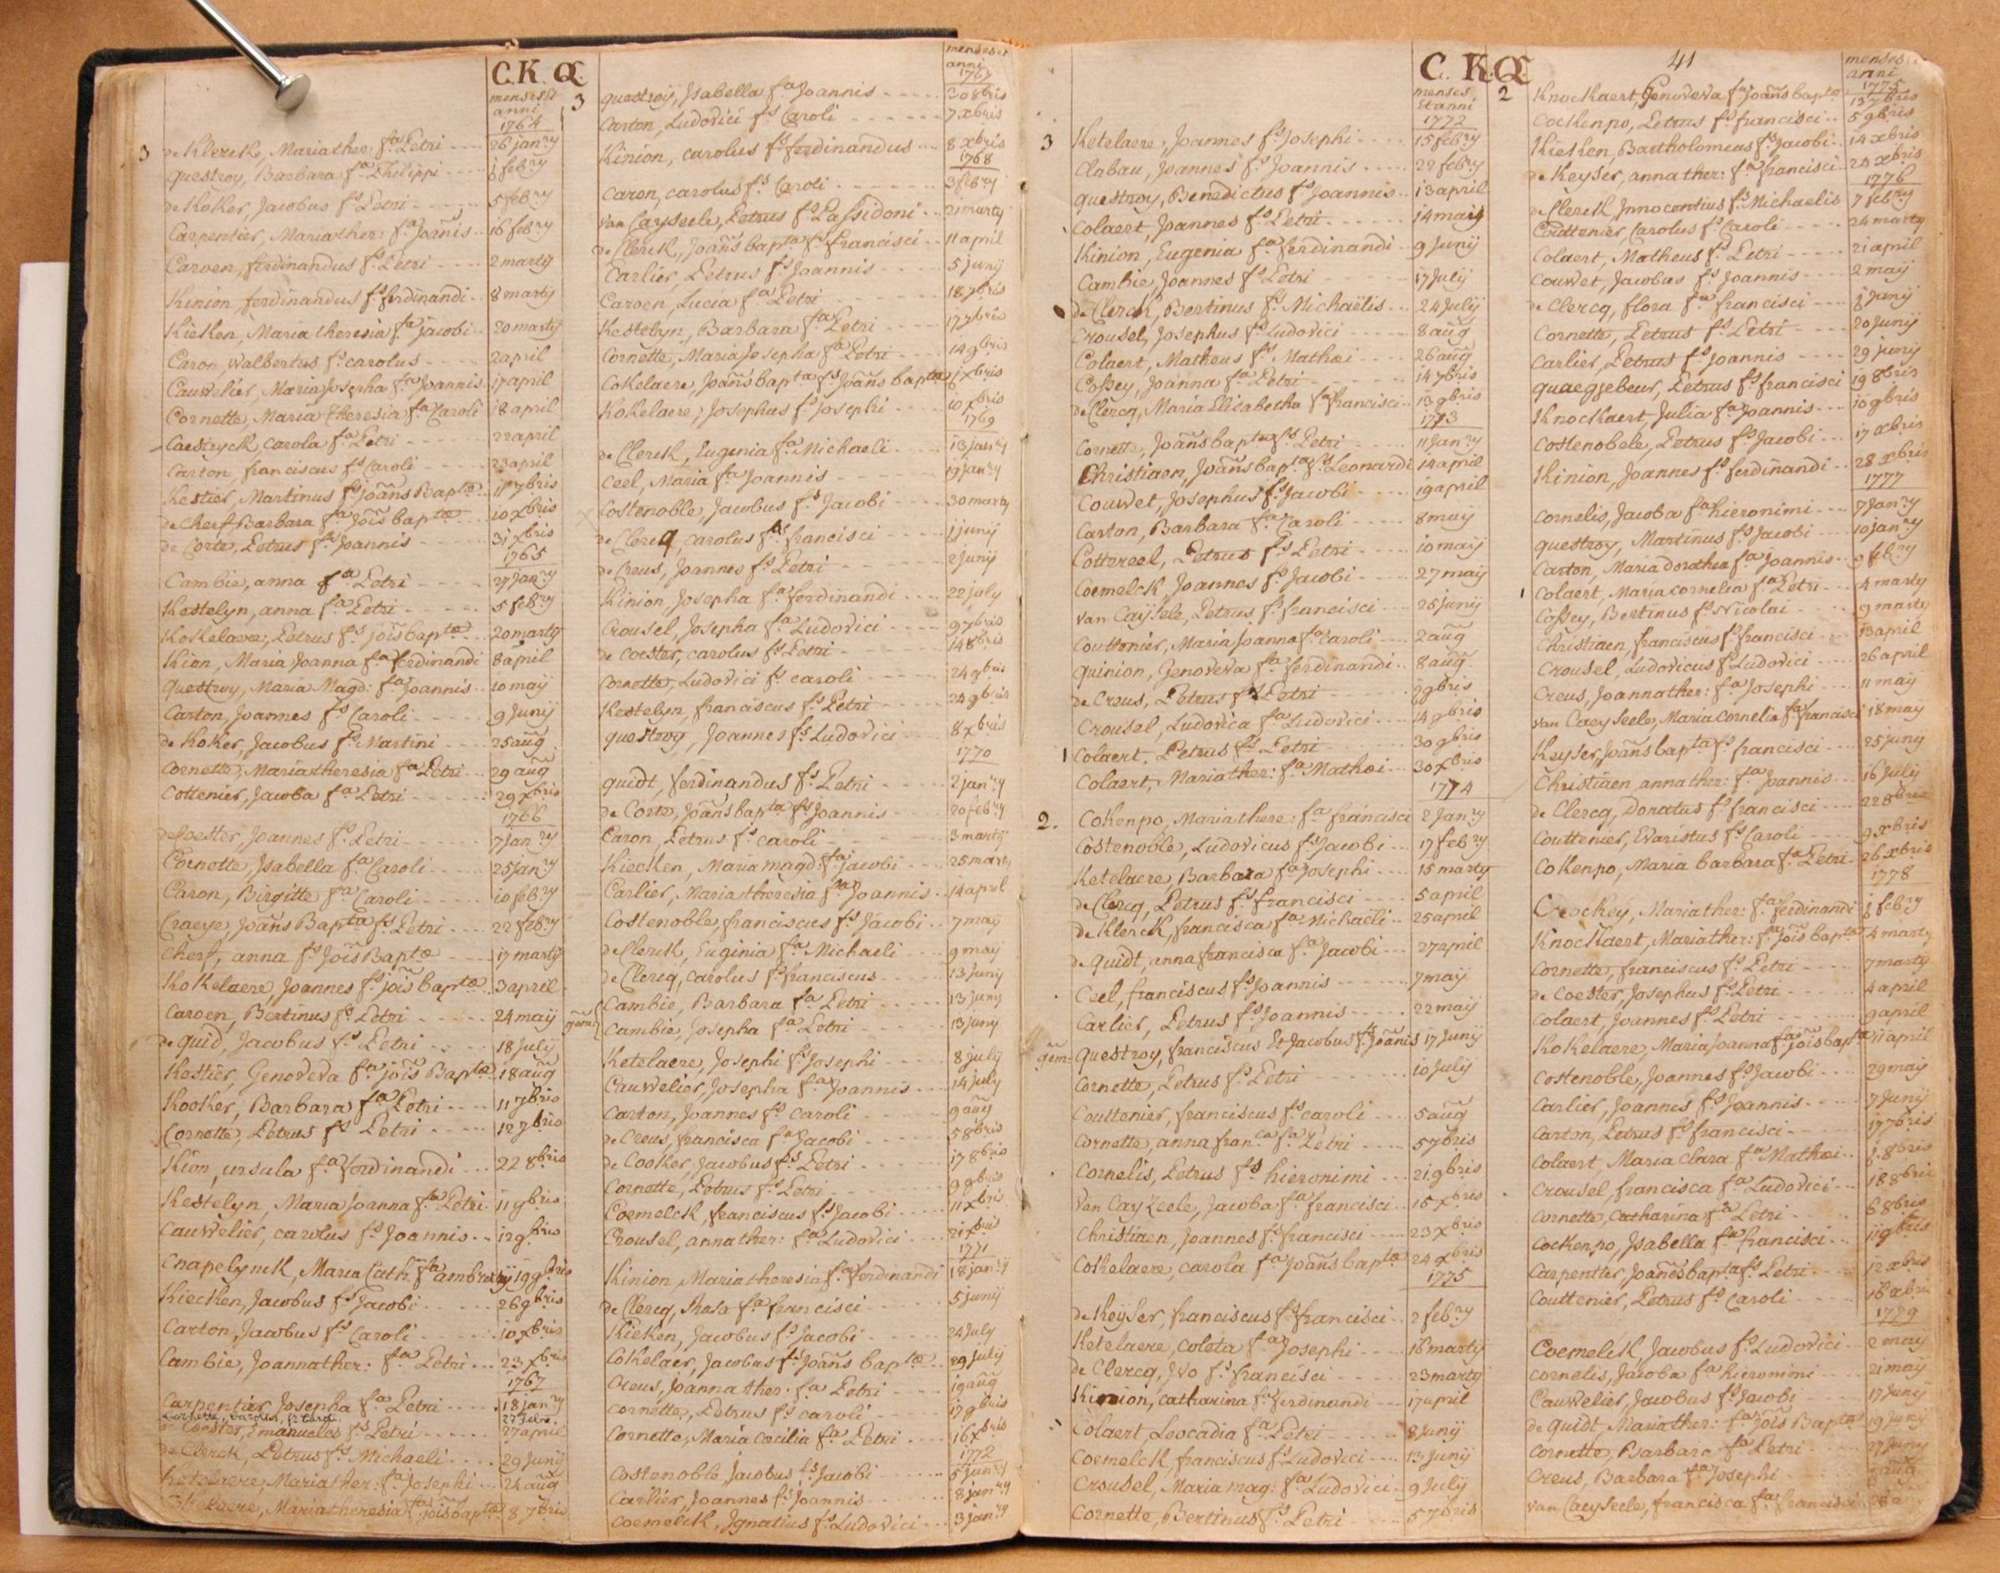 C. K. Q
menses et
anni
1764
3
de Klerck, Maria ther: fa Petri 26 janry
questroy, Barbara fa Philippi 1 febry
de Koker, Jacobus fs Petri 5 febry
Carpentier, Maria ther: fa Joañis 16 febry
Caroen, ferdinandus fs Petri 2 martij
Kinion, ferdinandus fs ferdinandi 8 martij
Kieken, Maria theresia fa Jacobi 20 martij
Caron Walbertus fs carolus 2 april
Cauwelier, Maria Josepha fa Joannis 17 april
Cornette, Maria theresia fa Caroli 18 april
Caestryck, Carola fa Petri 22 april
Carton, franciscus fs Caroli 23 april
Kestier, Martinus fs joãns Baptæ 11 7bris
de Cherf Barbara fa Joĩs baptæ 10 xbris
de Corte, Petrus fs Joannis 31 xbris
1765
Cambie, anna fa Petri 27 janry
Kestelyn, anna fa Petri 5 febry
Kokelaere, Petrus fs joĩs baptæ 20 martij
Kion, Maria Joanna fa ferdinandi 8 april
questroy, Maria Magd: fa Joannis 10 maij
Carton, Joannes fs Caroli 9 Junij
de Koker, Jacobus fs Martini 25 aũg
Cornette, Maria theresia fa Petri 29 aũg
Cottenier, Jacoba fa Petri 29 xbris
1766
de Coester, Joannes fs Petri 7 janry
Cornette, Isabella fa Caroli 25 janry
Caron, Birgitte fa Caroli 10 febry
Craeye, Joãns Bapta fs Petri 22 febry
Cherf, anna fs Joĩs Baptæ 17 martij
Kokelaere, Joannes fs joĩs baptæ 3 april
Caroen, Bertinus fs Petri 24 maij
de quid, Jacobus fs Petri 18 Julij
Kestier, Genoveva fa joĩs Baptæ 18 aũg
Kooker, Barbara fa Petri 11 7bris
Cornette, Petrus fs Petri 12 7bris
Kion, ursula fa ferdinandi 22 8bris
Kestelyn, Maria Joanna fa Petri 11 9bris
Cauwelier, carolus fs Joannis 12 9bris
Cnapelynck, Maria Cath: fa ambrosij 19 9bris
Kiecken, Jacobus fs Jacobi 26 9bris
Carton, Jacobus fs Caroli 10 xbris
Cambie, Joanna ther: fa Petri 23 xbris
1767
Carpentier Josepha fa Petri 18 janry
Cornette, carolus fs Caroli
de Coester, Emanueles fs Petri 27 april
de Clerck, Petrus fs Michaeli 29 Junij
Ketelaere, Maria ther: fa Josephi 24 aũg
Cokelaere, Maria theresia fa joĩs baptæ 8 7bris
menses et
anni
1767
3
questroij, Isabella fa Joannis 30 8bris
Carton, Ludovici fs Caroli 7 xbris
Kinion, carolus fs ferdinandus 8 xbris
1768
Caron, carolus fs Caroli 3 febry
van Cayseele, Petrus fs Passidoni 21 martij
de Clerck, Joãns bapta fs francisci 11 april
Carlier, Petrus fs Joannis 5 junij
Caroen, Lucia fa Petri 18 7bris
Kestelyn, Barbara fa Petri 17 7bris
Cornette, Maria Josepha fa Petri 14 9bris
Cokelaere, Joãns bapta fs Joãns baptæ 1 xbris
Kokelaere, Josephus fs Josephi 10 xbris
1769
de Clerck, Eugenia fa Michaeli 13 janry
Ceel, Maria fa Joannis 19 janry
Costenoble, Jacobus fs Jacobi 30 martij
de Clercq, carolus fs francisci 1 junij
de Creus, Joannes fs Petri 2 Junij
Kinion, Josepha fa ferdinandi 22 july
Crousel, Josepha fa Ludovici 9 7bris
de Coester, carolus fs Petri 14 8bris
Cornette, Ludovici fs caroli 24 9bris
Kestelyn, franciscus fs Petri 24 9bris
questroy, Joannes fs Ludovici 8 xbris
1770
quidt, ferdinandus fs Petri 2 janry
de Corte, Joãns bapta fs Joannis 20 febry
Caron, Petrus fs caroli 3 martij
Kiecken, Maria magd: fa Jacobi 25 martij
Carlier, Maria theresia fa Joannis 14 april
Costenoble, franciscus fs Jacobi 7 maij
de Clerck, Euginia fa Michaeli 9 maij
de Clercq, carolus fs franciscus 13 juny
gem: Cambie, Barbara fa Petri 13 juny
Cambie, Josepha fa Petri 13 juny
Ketelaere, Josephi fs Josephi 8 july
Cauwelier, Josepha fa Joannis 14 july
Carton, Joannes fs caroli 9 aũg
de Creus, francisca fa Jacobi 5 8bris
de Cooker, Jacobus fs Petri 17 8bris
Cornette, Petrus fs Petri 9 9bris
Coemelck, franciscus fs Jacobi 11 xbris
Crousel, anna ther: fa Ludovici 21 xbris
1771
Kinion, Maria theresia fa ferdinandi 18 janry
de Clercq, Rosa fa francisci 5 junij
Kieken, Jacobus fs Jacobi 24 july
Cokelaer, Jacobus fs Joãns baptæ 29 july
Creus, Joanna ther: fa Petri 19 aũg
Cornette, Petrus fs caroli 17 9bris
Cornette, Maria Cæcilia fa Petri 16 xbris
1772
Costenoble, Jacobus fs Jacobi 5 janry
Carlier, Joannes fs Joannis 8 janry
Coemelck, Ignatius fs Ludovici 3 janry
C. K. Q
menses
et anni
1772
3
Ketelaere, Joannes fs Josephi 15 febry
Clabau, Joannes fs Joannis 22 febry
questroy, Benedictus fs Joannis 13 april
Colaert, Joannes fs Petri 14 maij
Kinion, Eugenia fa ferdinandi 9 Junij
Cambie, Joannes fs Petri 17 July
de Clerck, Bertinus fs Michaëlis 24 July
Crousel, Josephus fs Ludovici 8 aũg
Colaert, Matheus fs Mathæi 26 aũg
Cossey, Joanna fa Petri 14 7bris
de Clercq, Maria Elisabetha fa francisci 13 9bris
1773
Cornette, Joãns bapta fs Petri 11 Janry
Christiaen, Joãns bapta fs Leonardi 14 april
Couwet, Josephus fs Jacobi 19 april
Carton, Barbara fa Caroli 8 maij
Cottereel, Petrus fs Petri 10 maij
Coemelck Joannes fs Jacobi 27 maij
van Cayseele, Petrus fs francisci 25 junij
Couttenier, Maria Joanna fa Caroli 2 aũg
Quinion, Genoveva fa ferdinandi 8 aũg
de Creus, Petrus fs Petri 2 9bris
Crousel, Ludovica fa Ludovici 14 9bris
1 Colaert, Petrus fs Petri 30 9bris
Colaert, Maria ther: fa Mathæi 30 xbris
1774
2.
Cokenpo, Maria there: fa francisci 2 Janry
Costenoble, Ludovicus fs Jacobi 17 febry
Ketelaere, Barbara fa Josephi 15 martij
de Clercq, Petrus fs francisci 5 april
de Klerck, francisca fa Michaeli 25 april
de Quidt, anna francisca fa Jacobi 27 april
Ceel, franciscus fs Joannis 7 maij
Carlier, Petrus fs Joannis 22 maij
gem: questroy, franciscus Et Jacobus fs Joañis 17 Junij
Cornette, Petrus fs Petri 10 Julij
Couttenier, franciscus fs caroli 5 aũg
Cornette, anna franca fa Petri 5 7bris
Cornelis, Petrus fs hieronimi 21 9bris
Van Cayzeele, Jacoba fa francisci 15 xbris
Christiaen, Joannes fs francisci 23 xbris
Cokelaere, carola fa Joãns baptæ 24 xbris
1775
de Keyser, franciscus fs francisci 2 febry
Ketelaere, Coleta fa Josephi 16 martij
de Clercq, Ivo fs francisci 23 martij
Kinnion, catharina fa ferdinandi 17 april
Colaert Leocadia fa Petri 8 Junij
Coemelck, franciscus fs Ludovici 13 Junij
Crousel, Maria mag: fa Ludovici 9 July
Cornette, Bertinus fs Petri 5 7bris
41
menses et
anni
1775
2
Knockaert, Genoveva fa Joãns baptæ 13 7bris
Cockenpo, Petrus fs francisci 5 9bris
Kieken, Bartholomeus fs Jacobi 14 xbris
de Keyser, anna ther: fa francisci 24 xbris
1776
de Clerck Innocentius fs Michaelis 7 febry
Couttenier, Carolus fs Caroli 24 martij
Colaert, Matheus fs Petri 21 april
Couwet, Jacobus fs Joannis 2 maij
de Clercq, flora fa francisci Junij
Cornette, Petrus fs Petri 20 Junij
Carlier, Petrus fs Joannis 29 junij
quaegebeur, Petrus fs francisci 19 8bris
Knockaert, Julia fa Joannis 10 9bris
Costenobele, Petrus fs Jacobi 17 xbris
Kinion, Joannes fs ferdinandi 28 xbris
1777
Cornelis, Jacoba fa hieronimi 7 Janry
questroy, Martinus fs Jacobi 10 janry
Carton, Maria dorothea fa Joannis febry
Colaert, Maria cornelia fa Petri 4 martij
Cossey, Bertinus fs Nicolai 9 martij
Christiaen, franciscus fs francisci 13 april
Crousel, Ludovicus fs Ludovici 26 april
Creus, Joanna ther: fa Josephi 11 maij
van Caeyseele, Maria Cornelia fa francisci 18 maij
Keyser, Joãns bapta fs francisci 25 juny
Christiaen, anna ther: fa Joannis 16 July
de Clercq, Donatus fs francisci 22 8bris
Couttenier, Evaristus fs Caroli 9 xbris
Cokenpo, Maria barbara fa Petri 26 xbris
1778
Crockey, Maria ther: fa ferdinandi febry
Knockaert, Maria ther: fa Joĩs bapta 4 martij
Cornette, franciscus fs Petri 7 martij
de Coester, Josephus fs Petri 4 april
Colaert, Joannes fs Petri 9 april
Kokelaere, Maria Joanna fa joĩs baptæ 11 april
Costenoble, Joannes fs Jacobi 29 maij
Carlier, Joannes fs Joannis 7 Junij
Carton, Petrus fs francisci 17 7bris
Colaert, Maria Clara fa Mathæi 8bris
Crousel, francisca fa Ludovici 18 8bris
Cornette, Catharina fa Petri 6 8bris
Cockenpo, Isabella fa francisci 11 9bris
Carpentier, Joañes bapta fs Petri 12 xbris
Couttenier, Petrus fs Caroli 16 xbris
1779
Coemelck Jacobus fs Ludovici 2 maij
Cornelis, Jacoba fa hieronimi 21 maij
Cauwelier, Jacobus fs Jacobi 17 Juny
de Quidt, Maria ther: fa Joĩs Baptæ 19 juny
Cornette, Barbara fa Petri 27 Juny
Creus, Barbara fa Josephi aũg
van Caeyseele, francisca fa francisci